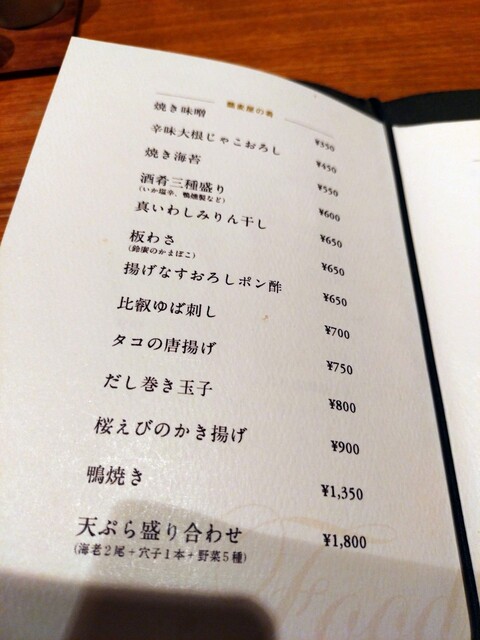 蕎麦屋の肴
焼き味噌 ¥350
辛味大根じゃこおろし ¥450
焼き海苔 ¥550
酒肴三種盛り ¥600
(いか塩辛、鴨燻製など)
真いわしみりん干し ¥650
板わさ ¥650
(鈴廣のかまぼこ)
揚げなすおろしポン酢 ¥650
比叡ゆば刺し ¥700
タコの唐揚げ ¥750
だし巻き玉子 ¥800
桜えびのかき揚げ ¥900
鴨焼き ¥1,350
天ぷら盛り合わせ ¥1,800
(海老2尾+穴子1本+野菜5種)
Food